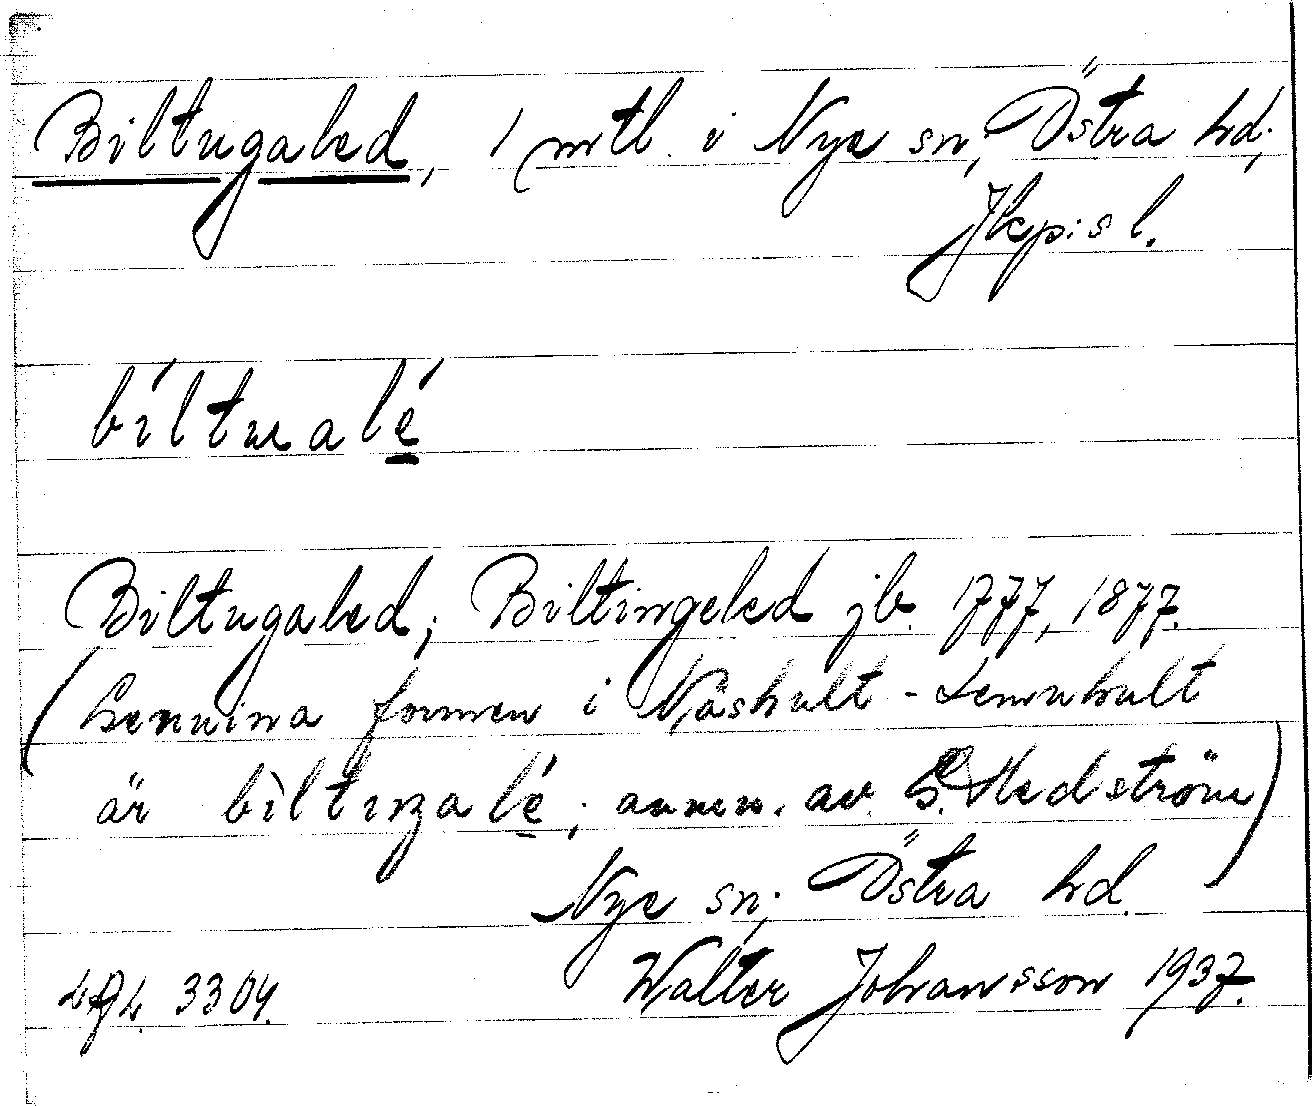 Biltugaled, 1 mtl. i Nye sn, Östra hd;
Jkp:s l.
bíltuƞalé
Biltugaled; Biltingeled jb. 1777, 1877.
(Genuina formen i Näshult - Lemnhult
är bìltuƞalé; anm. av G. Hedström)
Nye sn; Östra hd.
3304. Walter Johansson 1937.